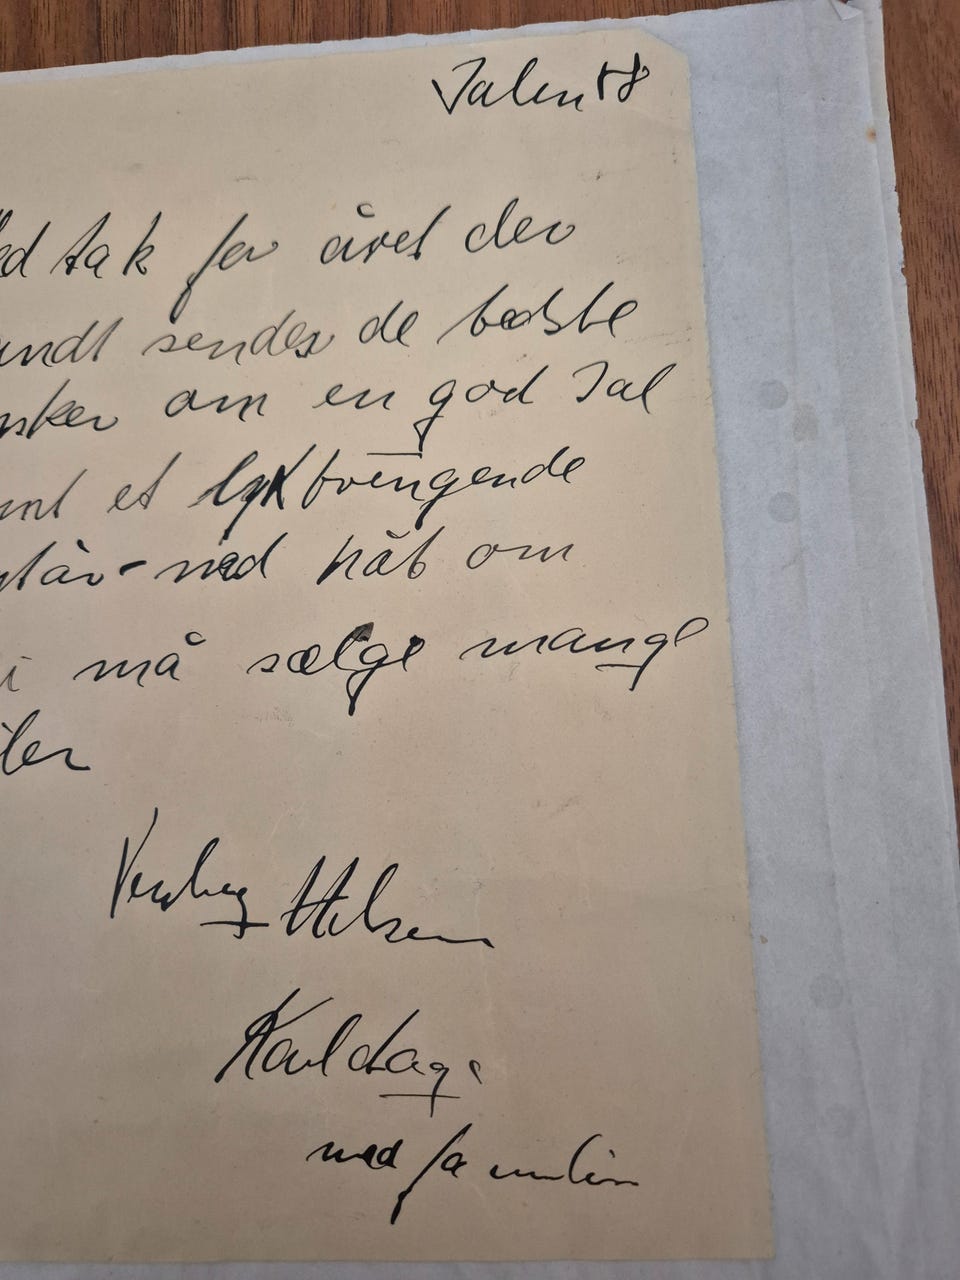 Julen 58
ed tak for året der
undt sendes de bedste
nsker om en god Jul
mt et lykbringende
ytår - med håb om
i må sælge mange
iler
med familie